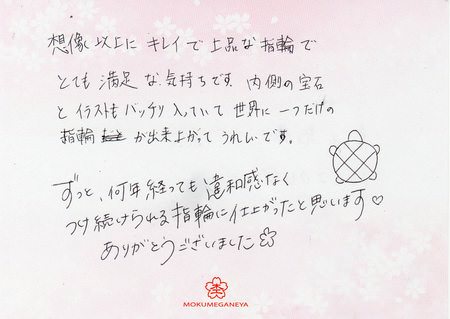 想像以上に キレイで上品な指輪で
とても満足な気持ちです。内側の宝石
とイラストもバッチリ入っていて世界に一つだけの
指輪が出来上がって うれしいです。
ずっと、何年経っても違和感なく
つけ続けられる指輪に仕上がったと思います♡
ありがとうございました
MOKUMEGANEYA